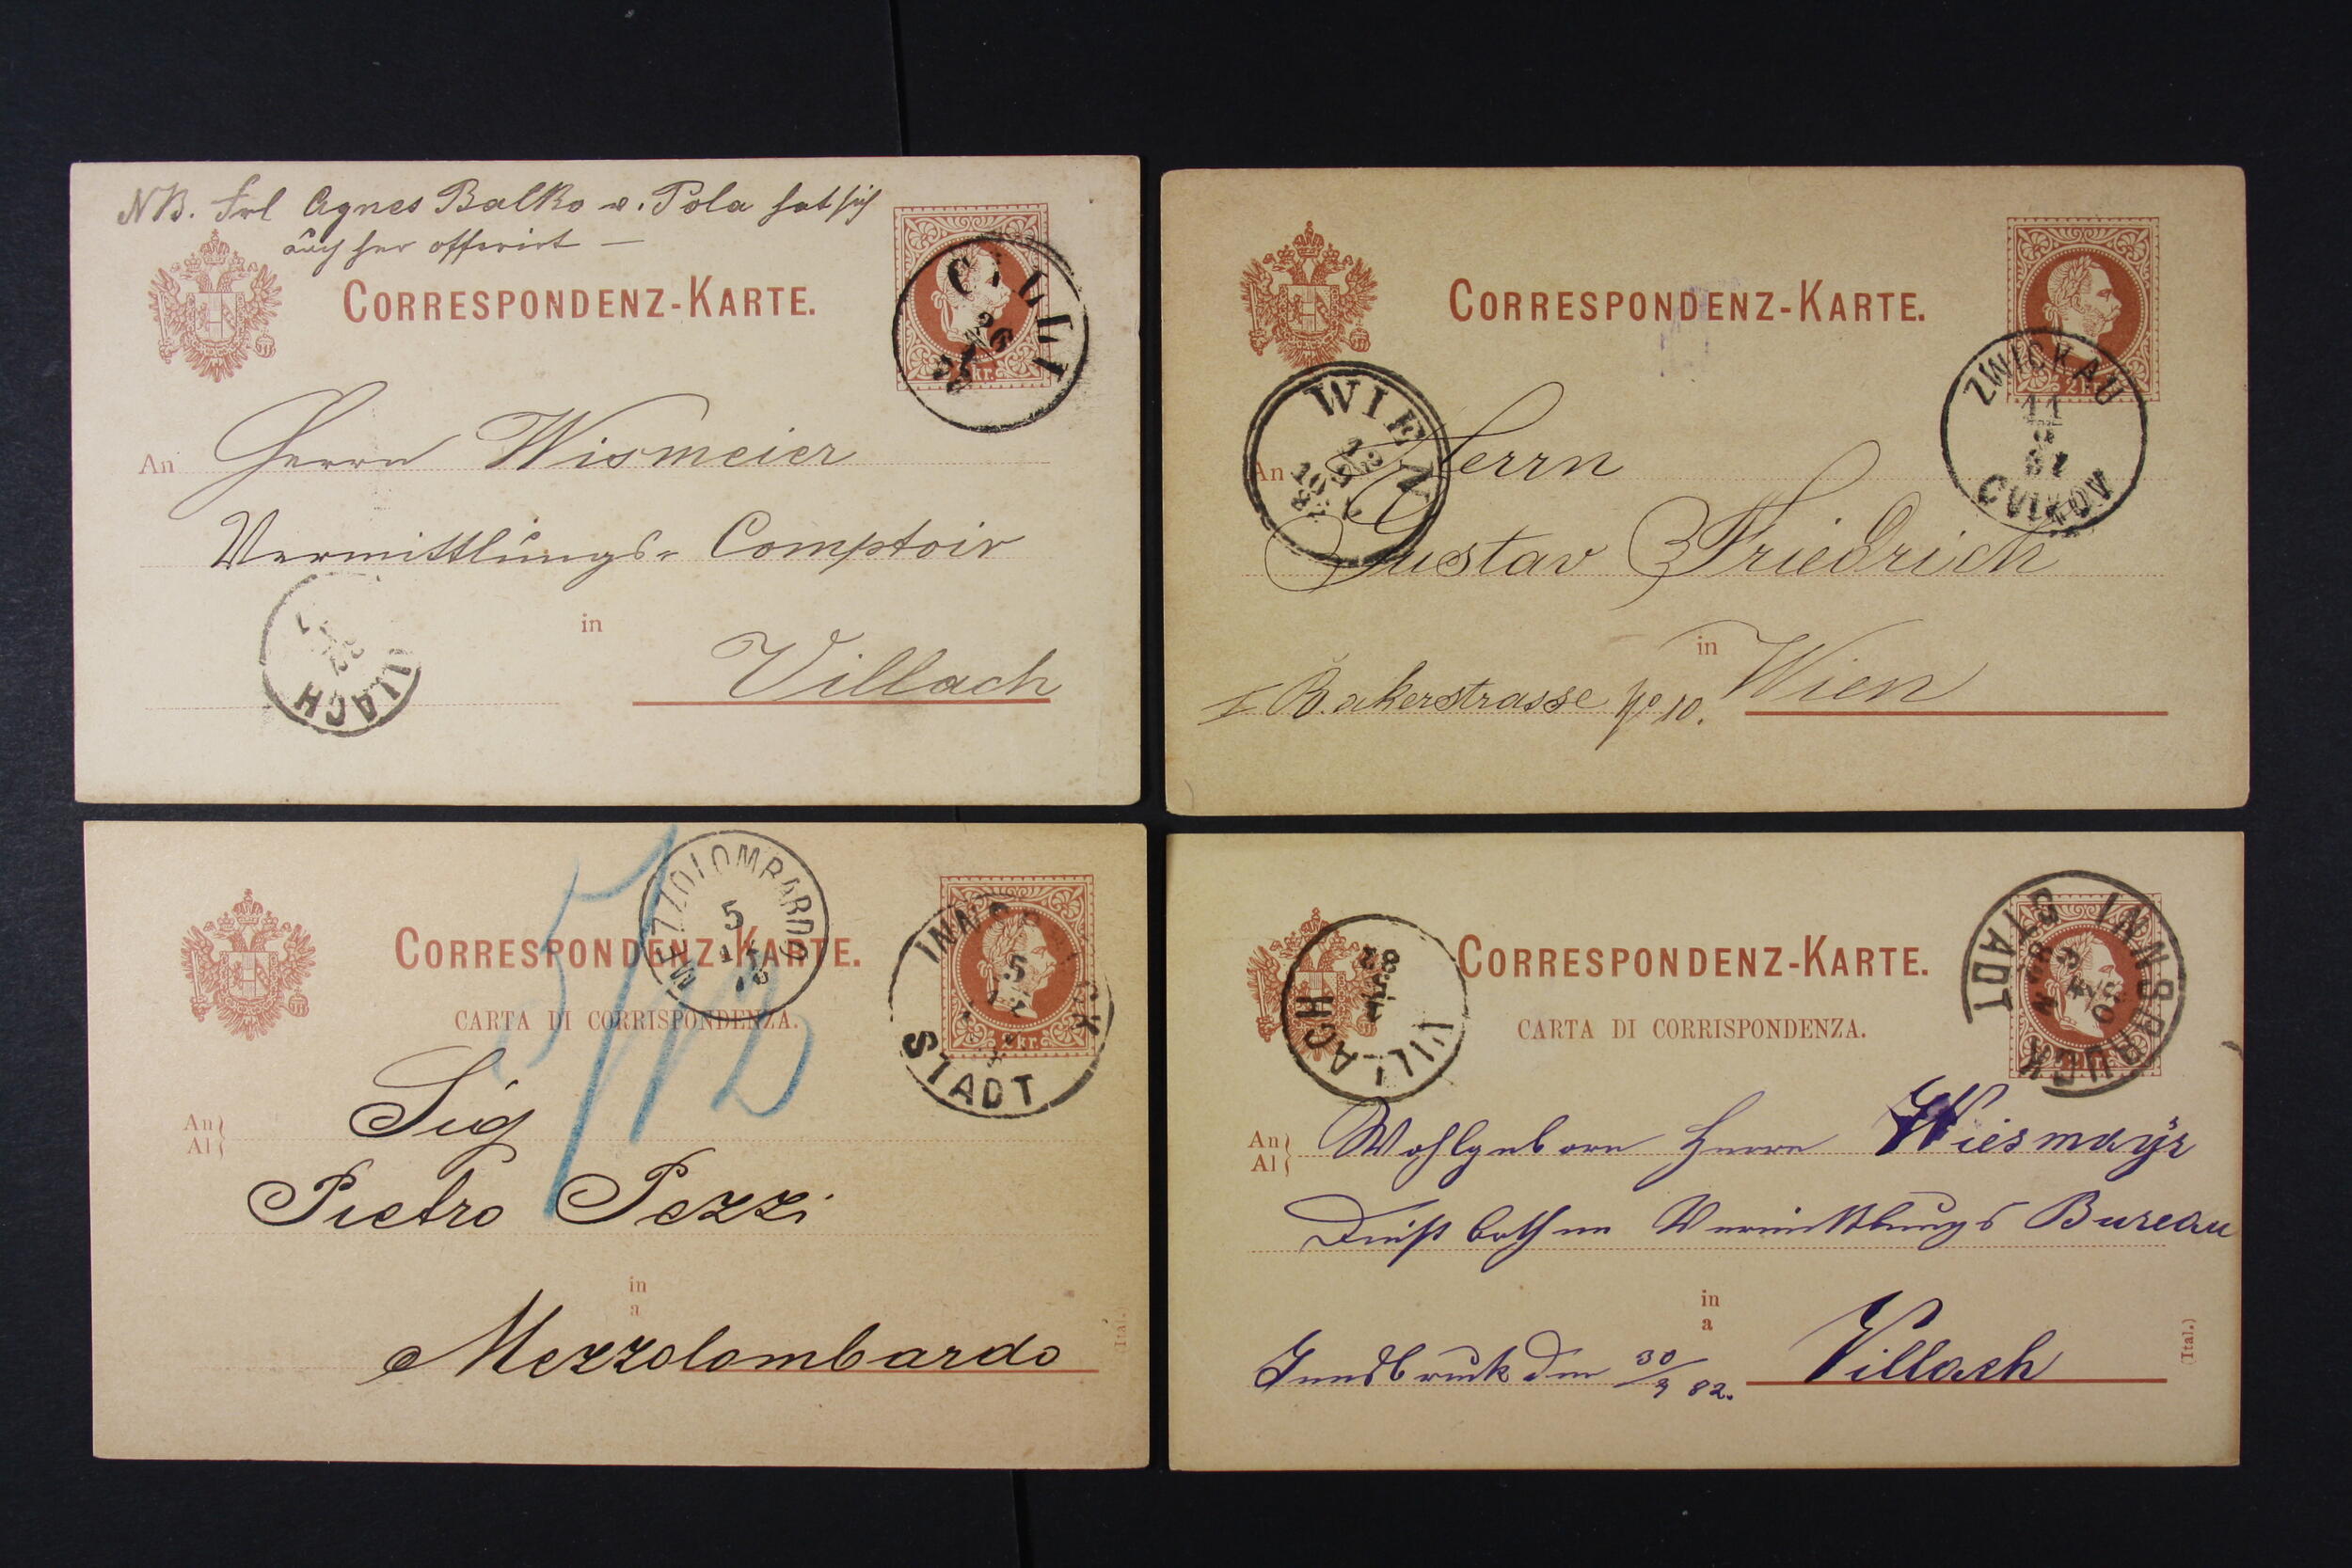 NB. Frl Agnes Balko v. Pola hat sich
auch her offerirt —
CORRESPONDENZ-KARTE.
CILLI
26
2 kr.
An Herrn Wismeier
Vermittlungs- Comptoir
in
Villach
LLACH
CORRESPONDENZ-KARTE.
2 kr.
ZWICKAU
11
8
81
CVIKOV
WIEN
An Herrn
Gustav Friedrich
in Wien
I Bäkerstrasse No 10.
CORRESPONDENZ-KARTE.
CARTA DI CORRISPONDENZA.
MEZZOLOMBARDO
5
12
INNSBRUCK
STADT
5
12
2 kr.
An
Al
Sig
Pietro Pezzi
in
a
Mezzolombardo
(Ital.)
CORRESPONDENZ-KARTE.
CARTA DI CORRISPONDENZA.
VILLACH
82
INNSBRUCK
STADT
An
Al
Wohlgeborn Herrn Wiesmayr
Dienstbothen Vermittlungs Bureau
in
a
Innsbruck den 30/9 82. Villach
(Ital.)